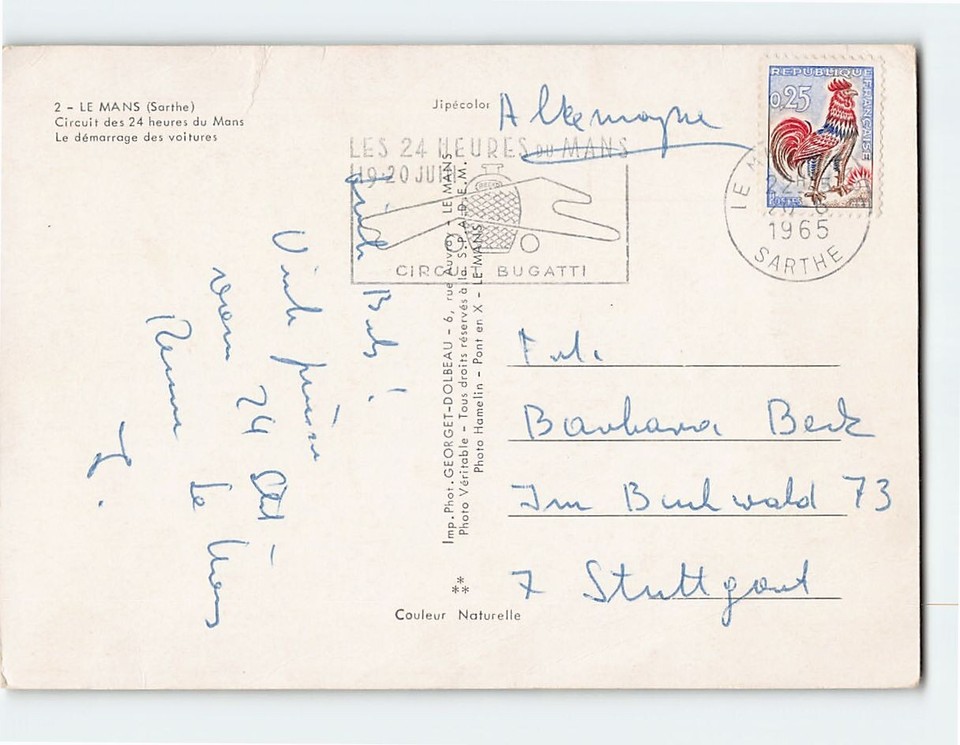 2 - LE MANS (Sarthe)
Circuit des 24 heures du Mans
Le démarrage des voitures
Jipécolor
Allemagne
REPUBLIQUE FRANÇAISE
0,25
POSTES
LES 24 HEURES DU MANS
19-20 JUIN
CIRCUIT BUGATTI
LE M
22H
1965
SARTHE
Imp. Phot. GEORGET-DOLBEAU - 6, rue Auvray - LE MANS
Photo Véritable - Tous droits réservés à la S.P.A.D.E.M.
Photo Hamelin - Pont en X - LE MANS
Couleur Naturelle
Barbara Beck
Im Buchwald 73
7 Stuttgart
Bab!
Viele
vom 24 Std
Rennen Le Mans
J.